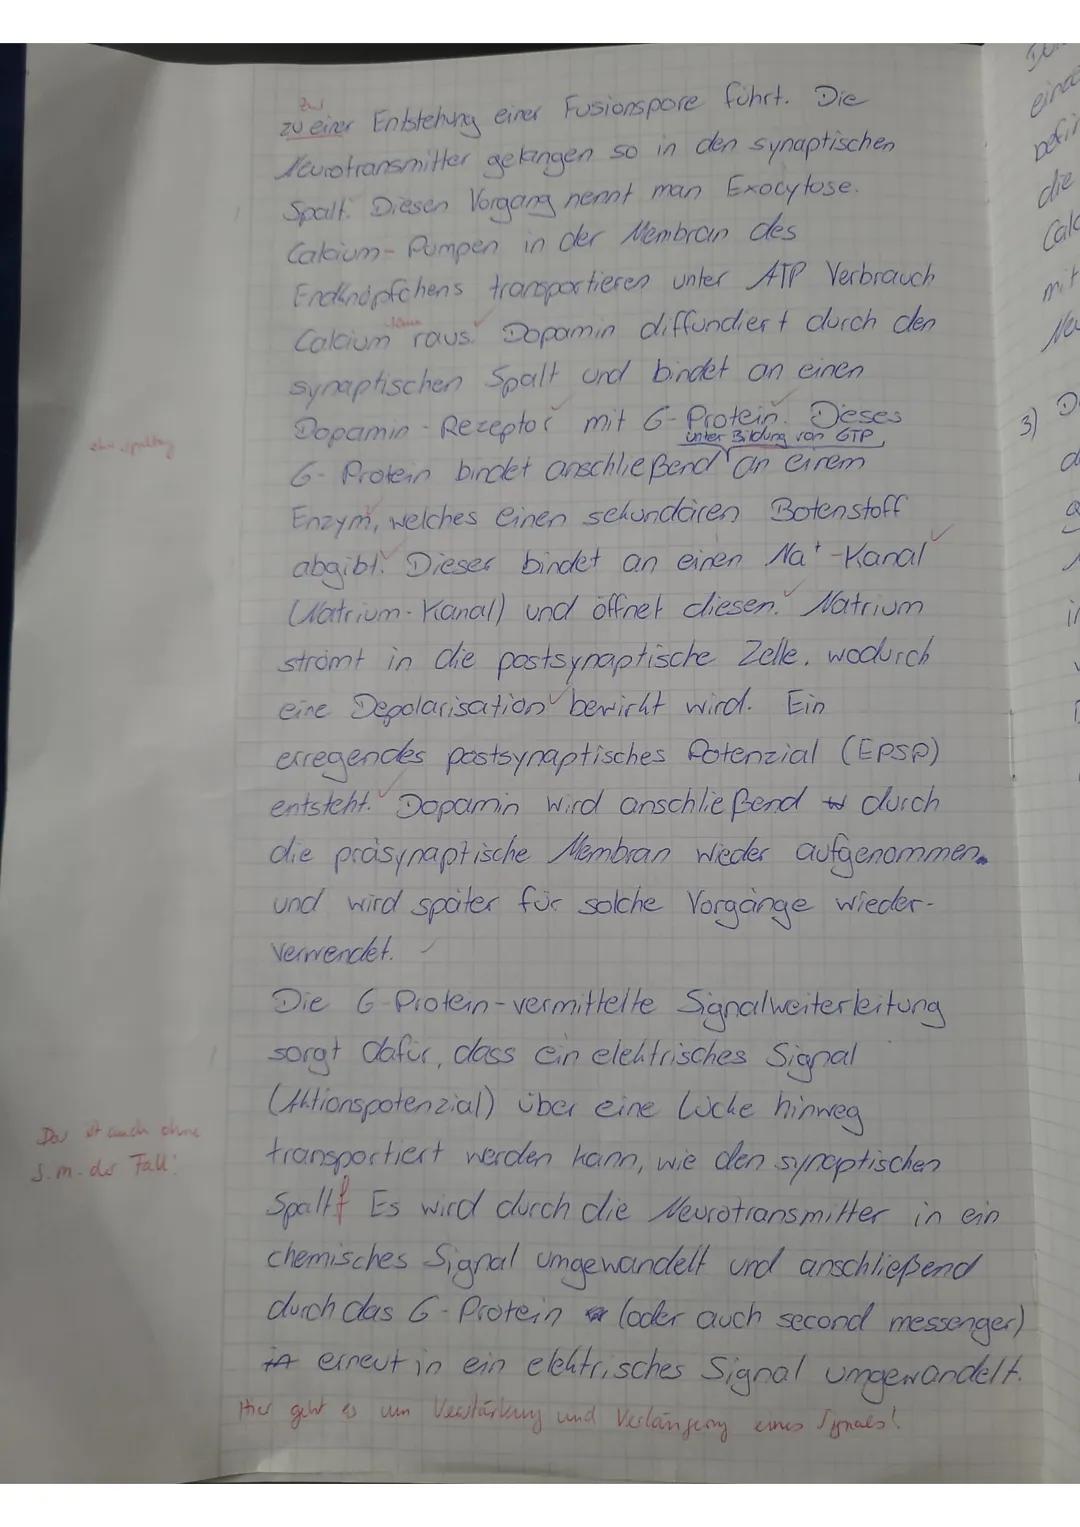 zur
zu einer Entstehung einer Fusionspore führt. Die
Neurotransmitter gelangen so in den synaptischen
Spalt. Diesen Vorgang nennt man Exocytose.
Calcium-Pumpen in der Membran des
Endknöpfchens transportieren unter ATP Verbrauch
Calcium raus. Dopamin diffundiert durch den
synaptischen Spalt und bindet an einen
Dopamin-Rezeptor mit G-Protein. Dieses
unter Bildung von GTP
G-Protein bindet anschließend an einem
Enzym, welches einen sekundären Botenstoff
abgibt. Dieser bindet an einen Na⁺-Kanal
(Natrium-Kanal) und öffnet diesen. Natrium
strömt in die postsynaptische Zelle, wodurch
eine Depolarisation bewirkt wird. Ein
erregendes postsynaptisches Potenzial (EPSP)
entsteht. Dopamin wird anschließend durch
die präsynaptische Membran wieder aufgenommen.
und wird später für solche Vorgänge wieder-
verwendet.
Die G-Protein-vermittelte Signalweiterleitung
sorgt dafür, dass ein elektrisches Signal
(Aktionspotenzial) über eine Lücke hinweg
Das ist auch ohne
s.m. der Fall!
transportiert werden kann, wie den synaptischen
Spalt. f Es wird durch die Neurotransmitter in ein
chemisches Signal umgewandelt und anschließend
durch das G-Protein (oder auch second messenger)
erneut in ein elektrisches Signal umgewandelt.
Hier geht es um Verstärkung und Verlängerung eines Signals!
einee
die
Calc
mit
3) D